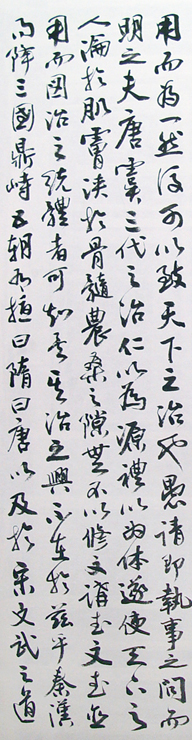 用而為一然後可以致天下之治也愚請即執事之問而
明之夫唐虞三代之治仁以為源禮以為体遂使天下之
人淪於肌膚浹於骨髓農桑之隙無不以修文講武文武並
用而圖治之統體者可知矣其治之興不在於茲乎秦漢
而降三國鼎峙五朝相擅曰隋曰唐以及於宋文武之道